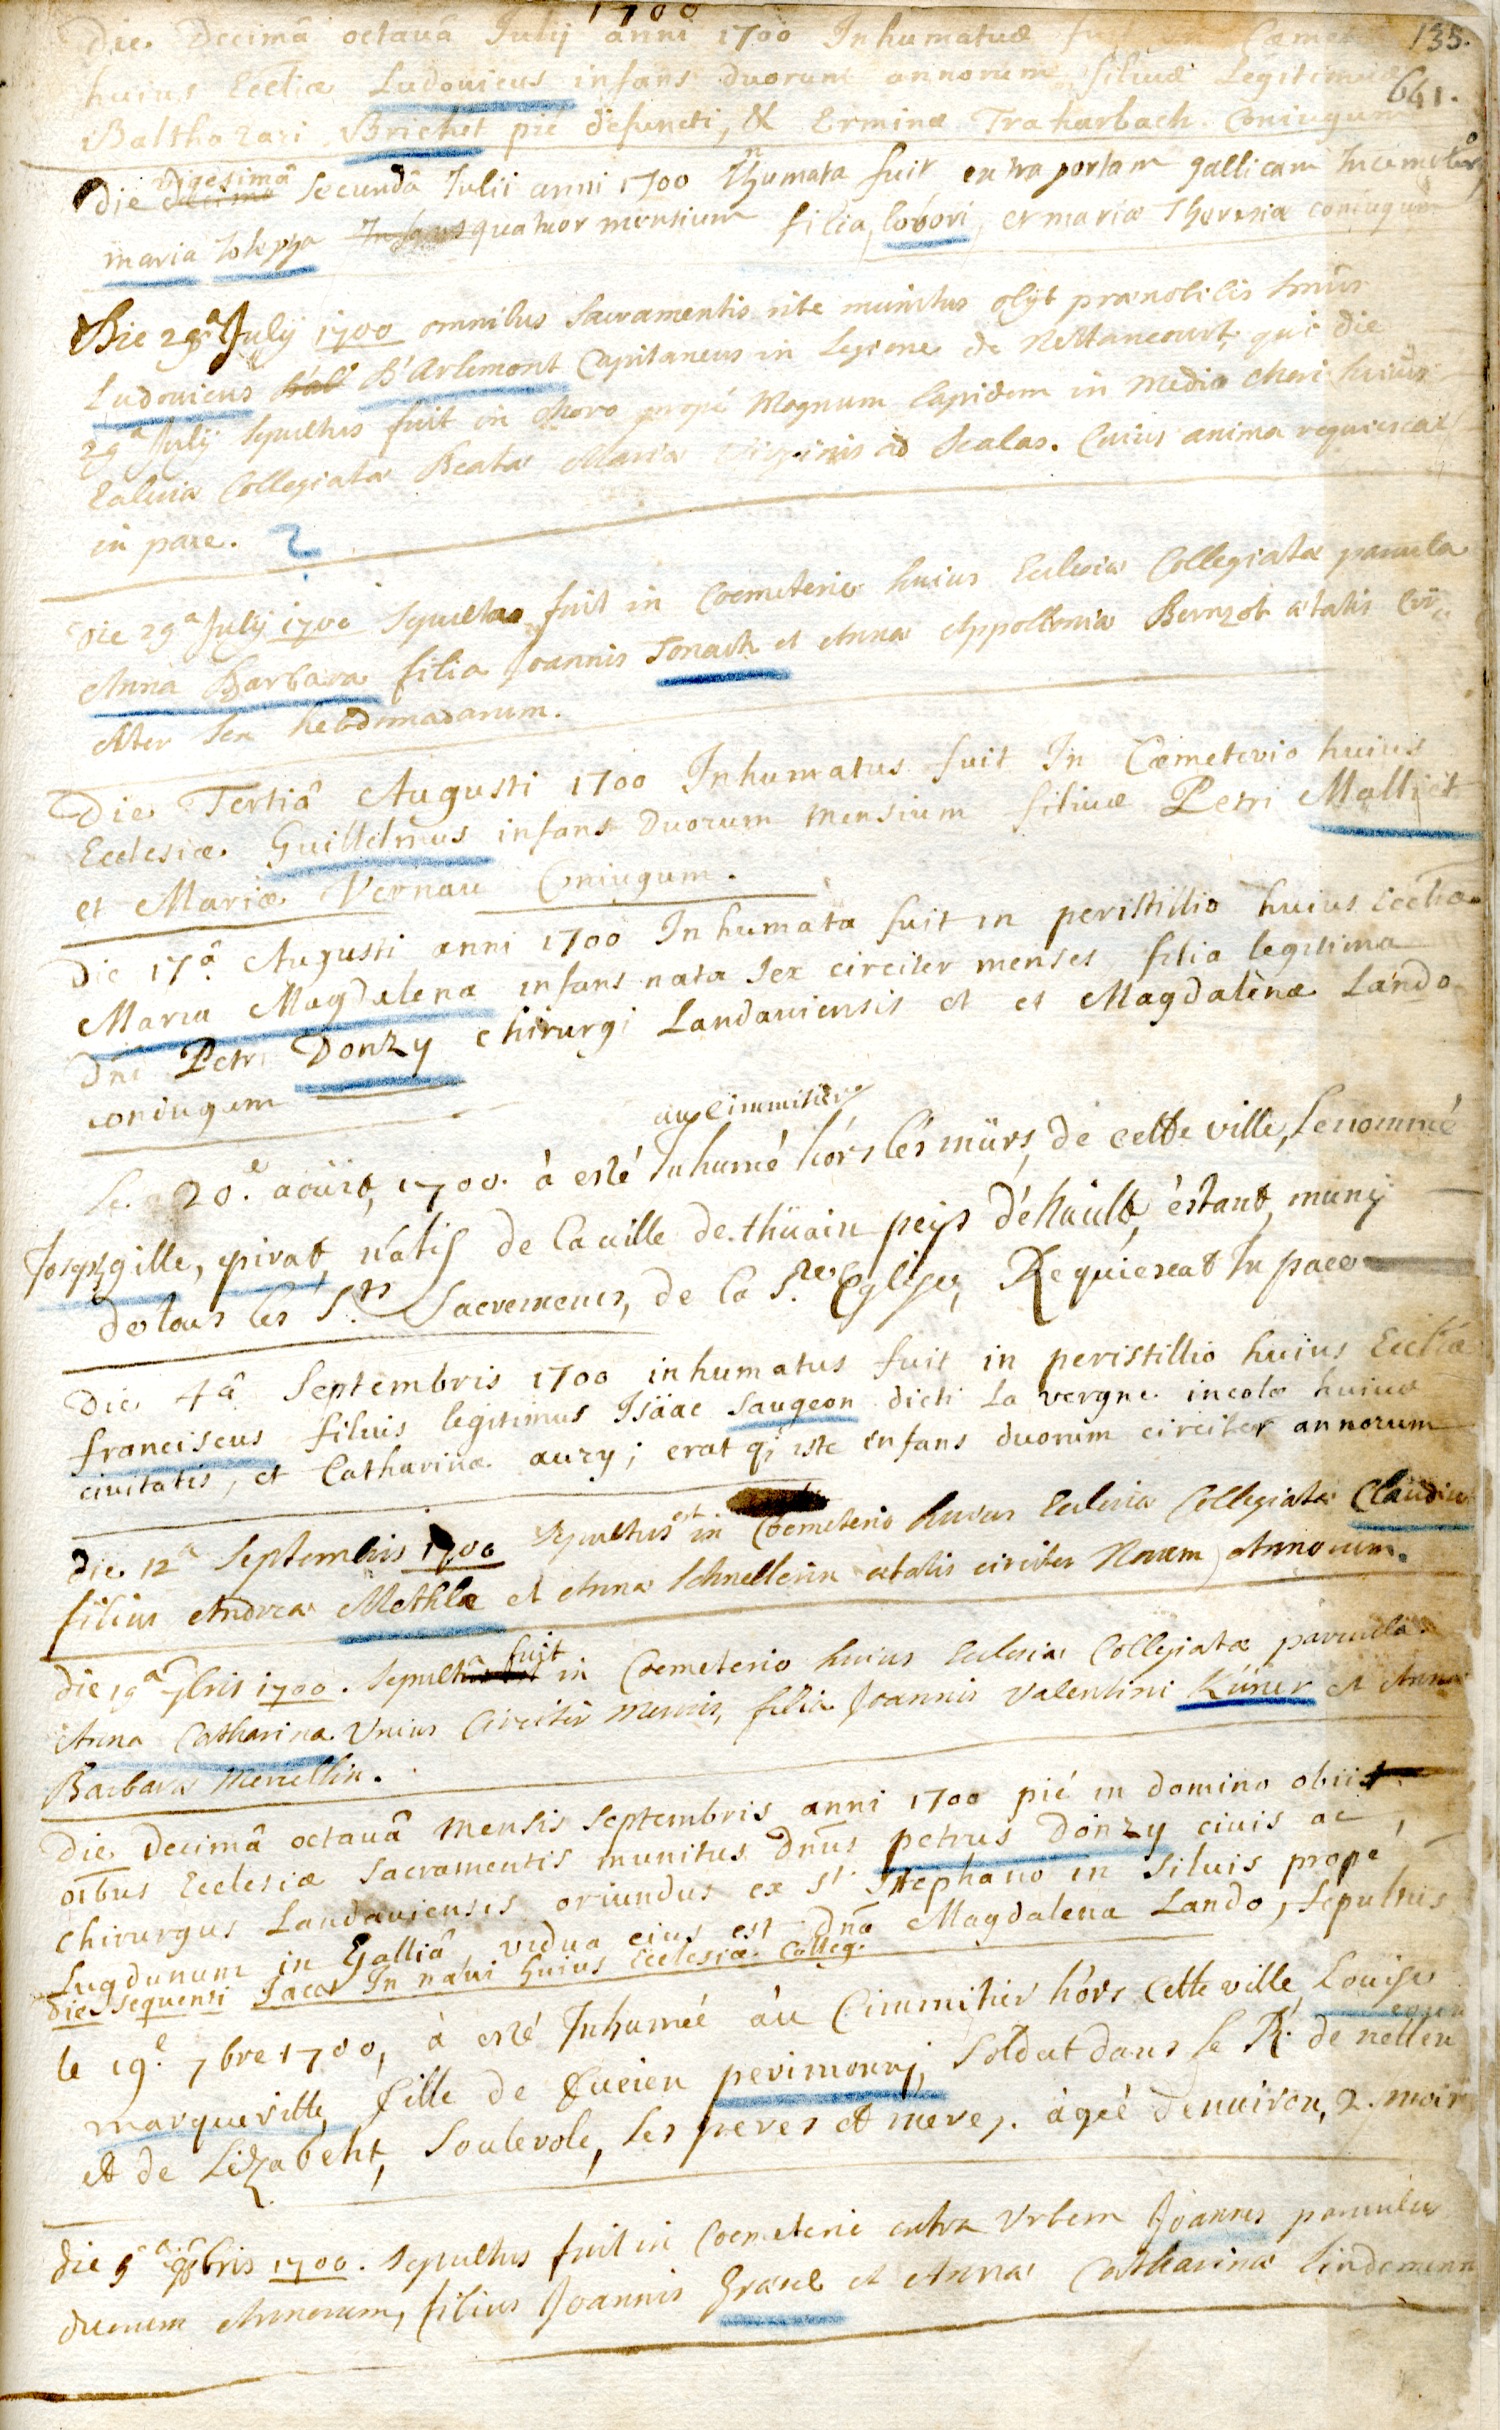 1700
135.
Die Decimâ octavâ Julij anni 1700 Inhumatus fuit in Cœmet
huius Eccliæ Ludovicus infans duorum annorum, filius Legitimus
641.
Balthazari Brichet pié defuncti, & Erminæ Traharbach Coniugum
Die vigesimâ secundâ Julii anni 1700 Inhumata fuit extra portam gallicam In cemeterio
maria Josepha quatuor mensium filia, lobori, et mariæ Theresiæ coniugum
Die 28ª July 1700 omnibus Sacramentis rite munitus obijt prænobilis Dnus
Ludovicus D'Arlemont Capitaneus in Legione de Nettancourt, qui die
29ª July sepultus fuit in Choro propé Magnum Lapidem in Medio Chori huius
Ecclesiæ Collegiatæ Beatæ Mariæ Virginis ad Scalas. Cuius anima requiescat
in pace. ?
Die 29ª July 1700 Sepulta fuit in Coemeterio huius Ecclesiæ Collegiatæ parvula
Anna Barbara filia Joannis Jonash et Annæ Appolloniæ Bernzot ætatis Cir-
citer sex hebdomadarum.
Die Tertiâ Augusti 1700 Inhumatus fuit In Cœmeterio huius
Ecclesiæ Guillelmus infans Duorum mensium filius Petri Malliet
et Mariæ Vernau Coniugum.
Die 17â Augusti anni 1700 Inhumata fuit in peristillio huius Eccliæ
Maria Magdalena infans nata sex circiter menses filia legitima
Dni Petri Donzy chirurgi Landaviensis et et Magdalènæ Lando
coniugum
au Cimmitier
Le 20.e aoüst, 1700. à esté Inhumé hórs lés mürs, de cette ville, le nommé
Joseph gille, pirat, natif de la ville de thüain peijs d'éhault, éstant, muny
de tous les Sts Sacremens, de la Ste Eglise, Requiescat In pace
Die 4â Septembris 1700 inhumatus fuit in peristillio huius Eccliæ
franciscus filius legitimus Isäac Saugeon dicti la vergne incolæ huius
civitatis, et Catharinæ auzy; erat q; iste infans duorum circiter annorum
Die 12ª Septembris 1700 Sepultus est in Coemeterio huius Ecclesiæ Collegiatæ Claudius
filius Andreæ Methlæ et Annæ Schnellerin ætatis circiter Novem Annorum.
Die 19ª 7bris 1700. Sepulta fuit in Coemeterio huius Ecclesiæ Collegiatæ parvula
Anna Catharina Unius Circiter Mensis, filia Joannis Valentini Küner et Annæ
Barbaræ Merellin.
Die Decimâ octavâ mensis Septembris anni 1700 pié in domino obiit
oîbus Ecclesiæ Sacramentis munitus Dnus petrus Donzy civis ac
Chirurgus Landaviensis oriundus ex St Stephano in Silvis propé
Lugdunum in Galliâ, vidua eius est Dna Magdalena Lando, Sepultus
die Sequenti Jacet In navi huius Ecclesiæ Colleg.
le 19.e 7bre 1700, à esté Inhumée aü Cimmitier hórs cette ville, Louise
marqueville, fille de Lucien perimony, Soldat dans le R. de nettencourt
et de Lizabeht, Soulevole, Ses peres et meres. agéé denviron, 2. mois
Die 5ª 8bris 1700. Sepultus fuit in Coemeterio extra Urbem Joannes parvulus
duorum Annorum, filius Joannis Grasel et Annæ Catharinæ Lindemann